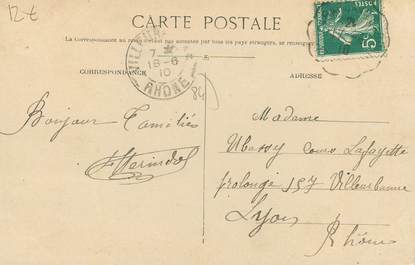 12€
CARTE POSTALE
La Correspondance au recto n'est pas acceptée par tous les pays étrangers, se renseigner
CORRESPONDANCE
ADRESSE
7
18-6
10
RHÔNE
84
5c
POSTES
10
Bonjour Familier
Madame
cours Lafayette
prolongé 157 Villeurbanne
Lyon
Rhône